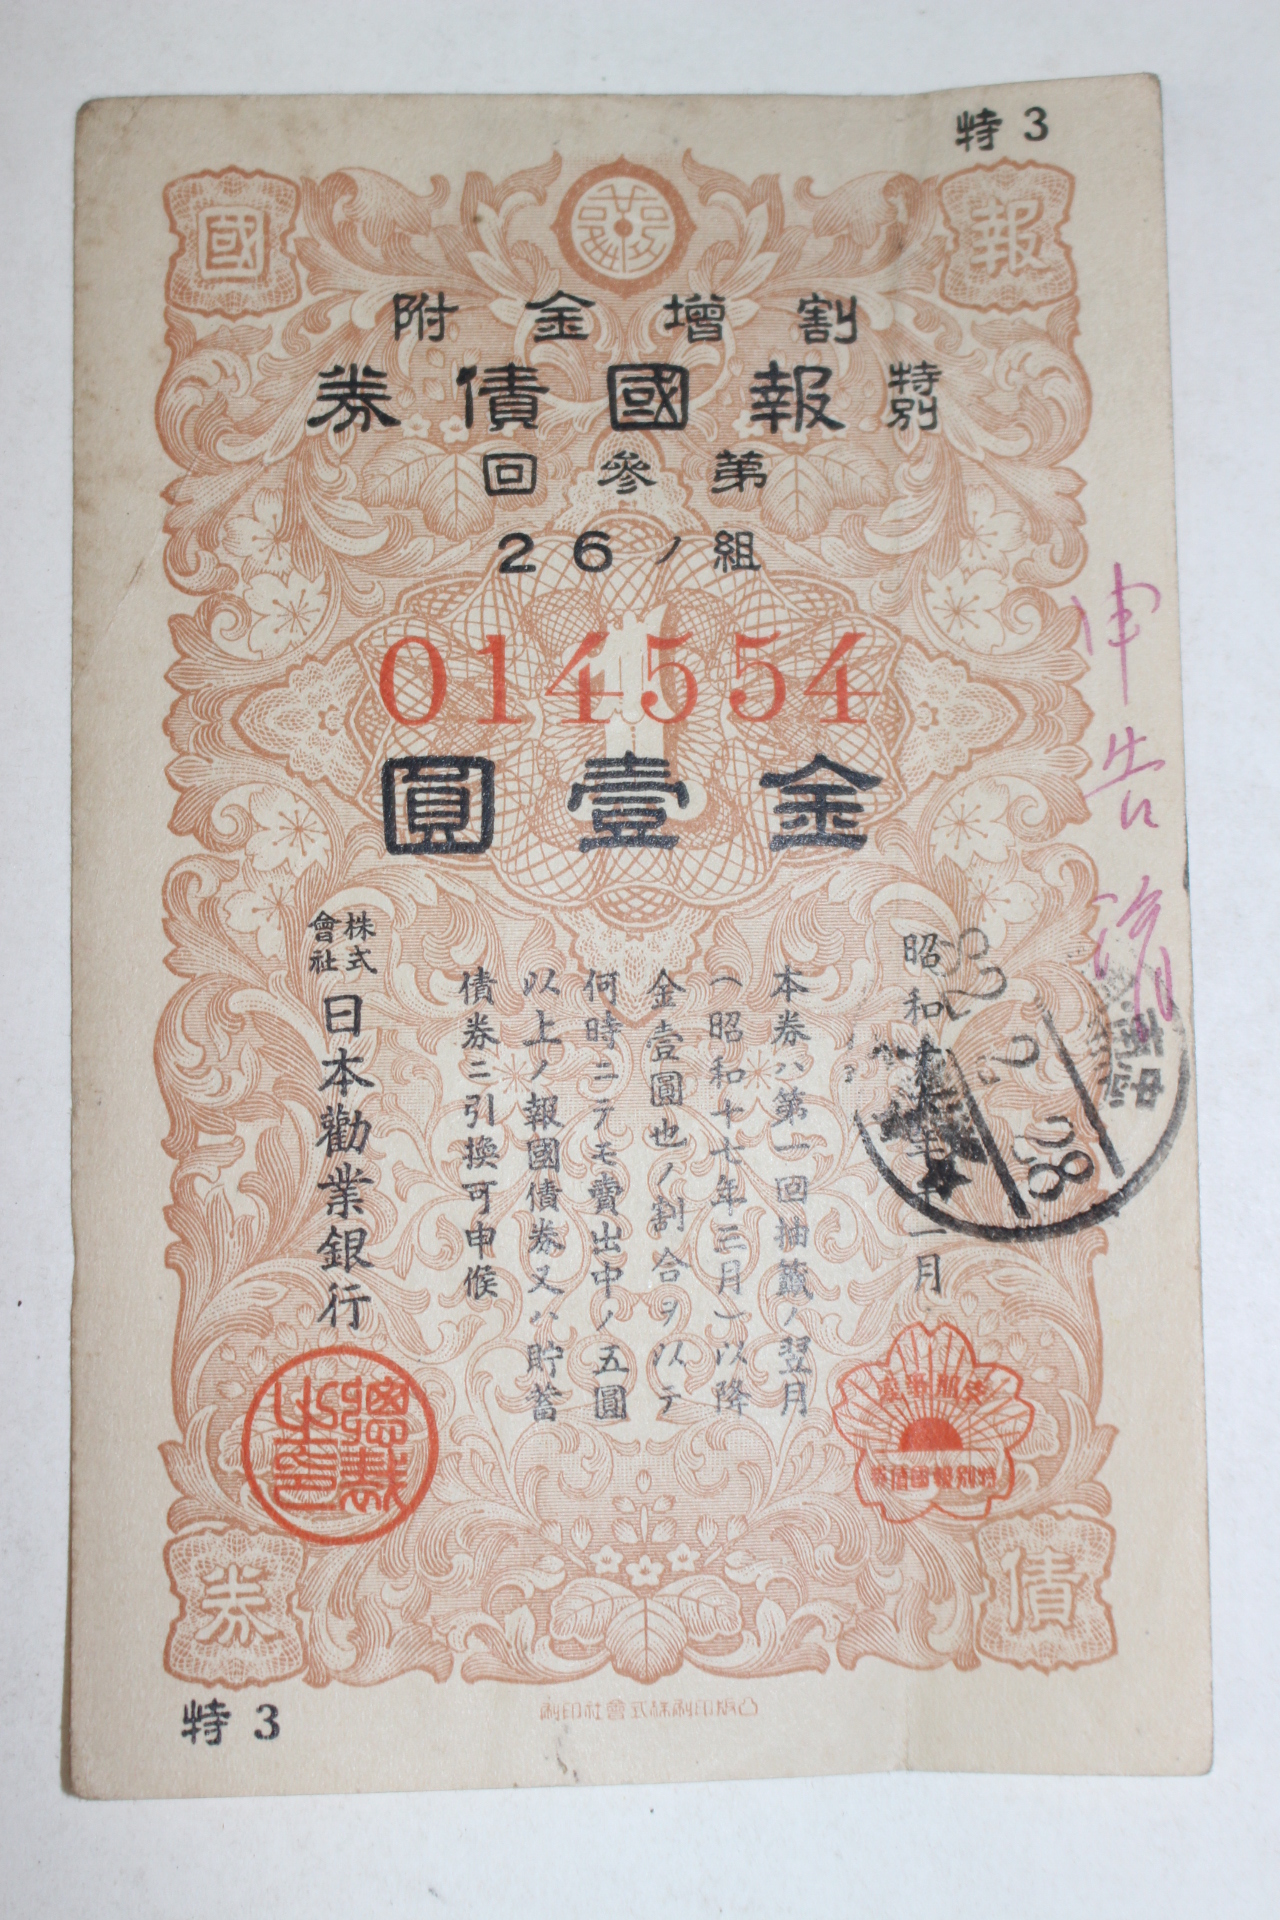 特 3
報
國
割增金附
特別報國債券
第參回
26ノ組
014554
金壹圓
申告済
昭和 年 月
本券ハ第一回抽籤ノ翌月
(昭和十七年三月)以降
金壹圓也ノ割合ヲ以テ
何時ニテモ賣出中ノ五圓
以上ノ報國債券又ハ貯蓄
債券ニ引換可申候
株式會社日本勸業銀行
總裁之印
特別報國債券
28
債
券
凸版印刷株式會社印刷
特 3